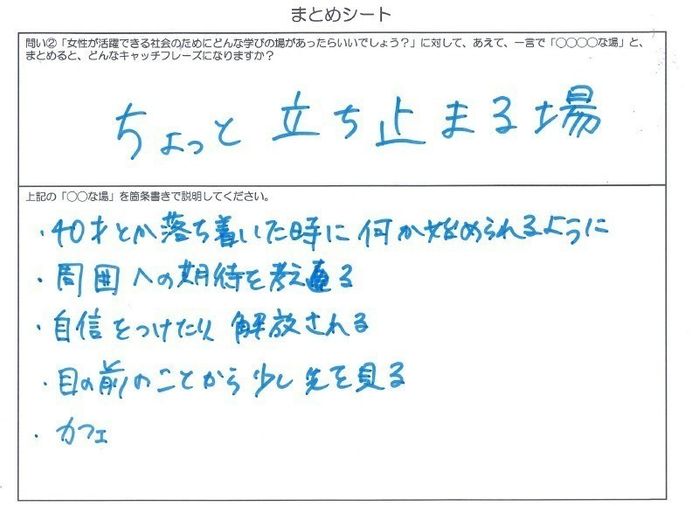 まとめシート
問い②「女性が活躍できる社会のためにどんな学びの場があったらいいでしょう？」に対して、あえて、一言で「○○○○な場」と、
まとめると、どんなキャッチフレーズになりますか？
ちょっと立ち止まる場
上記の「○○な場」を箇条書きで説明してください。
・40才とか落ち着いた時に何か始められるように
・周囲への期待を考える
・自信をつけたり解放される
・目の前のことから少し先を見る
・カフェ